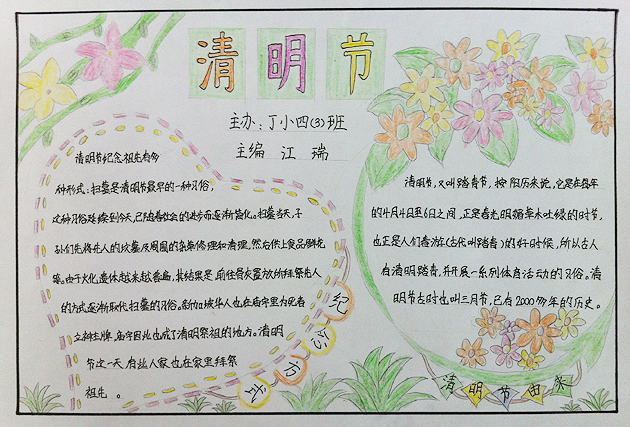 清明节
主办：丁小四(3)班
主编 江 瑞
清明节纪念祖先有多
种形式：扫墓是清明节最早的一种习俗，
这种习俗延续到今天，已随着社会的进步而逐渐简化。扫墓当天，子
孙们先将先人的坟墓及周围的杂草修理和清理，然后供上食品鲜花
等。由于火化遗体越来越普遍，其结果是，前往骨灰置放地拜祭先人
的方式逐渐取代扫墓的习俗。新加坡华人也在庙宇里为死者
立神主牌，庙宇因此也成了清明祭祖的地方。清明
节这一天，有些人家也在家里拜祭
祖先。
纪念方式
清明节，又叫踏青节，按阳历来说，它是在每年
的4月4日至6日之间，正是春光明媚草木吐绿的时节，
也正是人们春游(古代叫踏青)的好时候，所以古人
有清明踏青，并开展一系列体育活动的习俗。清
明节古时也叫三月节，已有2000多年的历史。
清明节由来